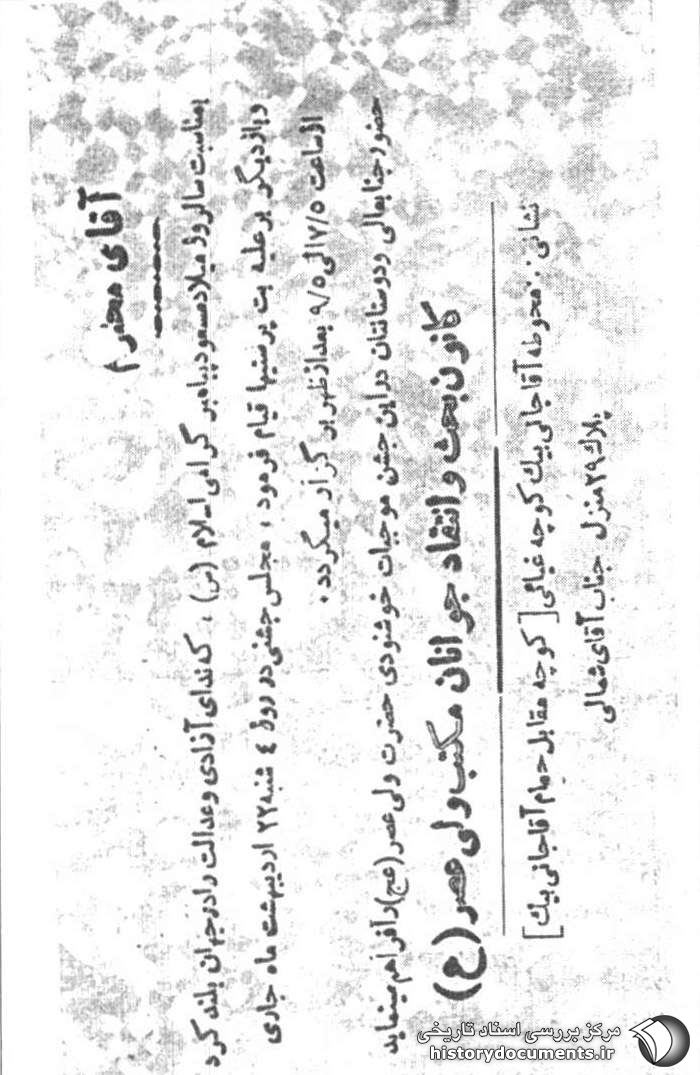 آقای محترم
بمناسبت سالروز میلاد مسعود پیامبر گرامی اسلام (ص) ، که ندای آزادی و عدالت را در جهان بلند کرد
و بار دیگر بر علیه بت پرستیها قیام فرمود ، مجلس جشنی در روز ٤ شنبه ۲۲ اردیبهشت ماه جاری
از ساعت ۷/۵ الی ۹/۵ بعد از ظهر بر گزار میگردد .
حضور جنابعالی و دوستانتان در این جشن موجبات خوشنودی حضرت ولی عصر (عج) را فراهم مینماید
کانون بحث و انتقاد جوانان مکتب ولی عصر (ع)
نشانی : محوطه آقا جانی بیك کوچه غیاثی [ کوچه مقابل حمام آقا جانی بیك ]
پلاك ۲۹ منزل جناب آقای شمالی
مرکز بررسی اسناد تاریخی
historydocuments.ir